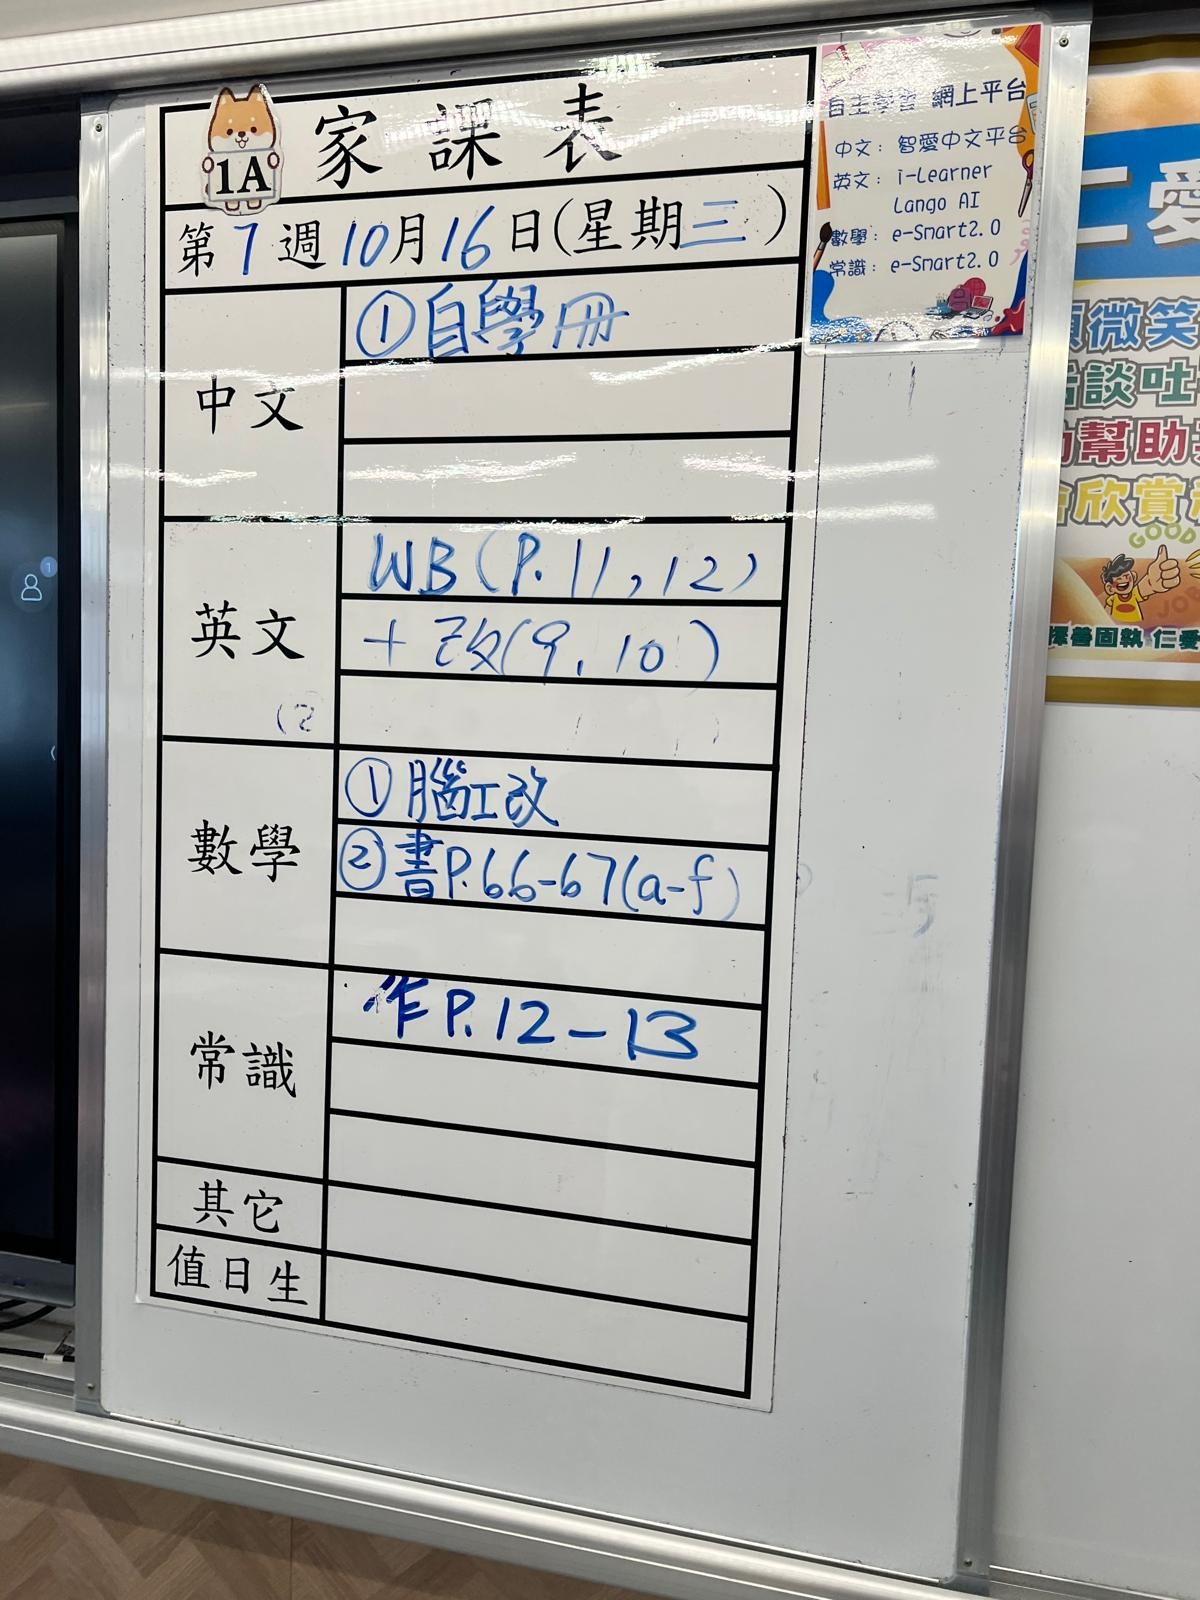 1A
家課表
第7週10月16日(星期三)
中文
①自學冊
英文
WB(P.11,12)
+改(9,10)
(2
數學
①腦工改
②書P.66-67(a-f)
常識
作P.12-13
其它
值日生
自主學習 網上平台
中文：智愛中文平台
英文：i-Learner
Lango AI
數學：e-Smart2.0
常識：e-Smart2.0
仁愛
微笑
談吐
幫助
欣賞
GOOD
JOB
擇善固執 仁愛
1